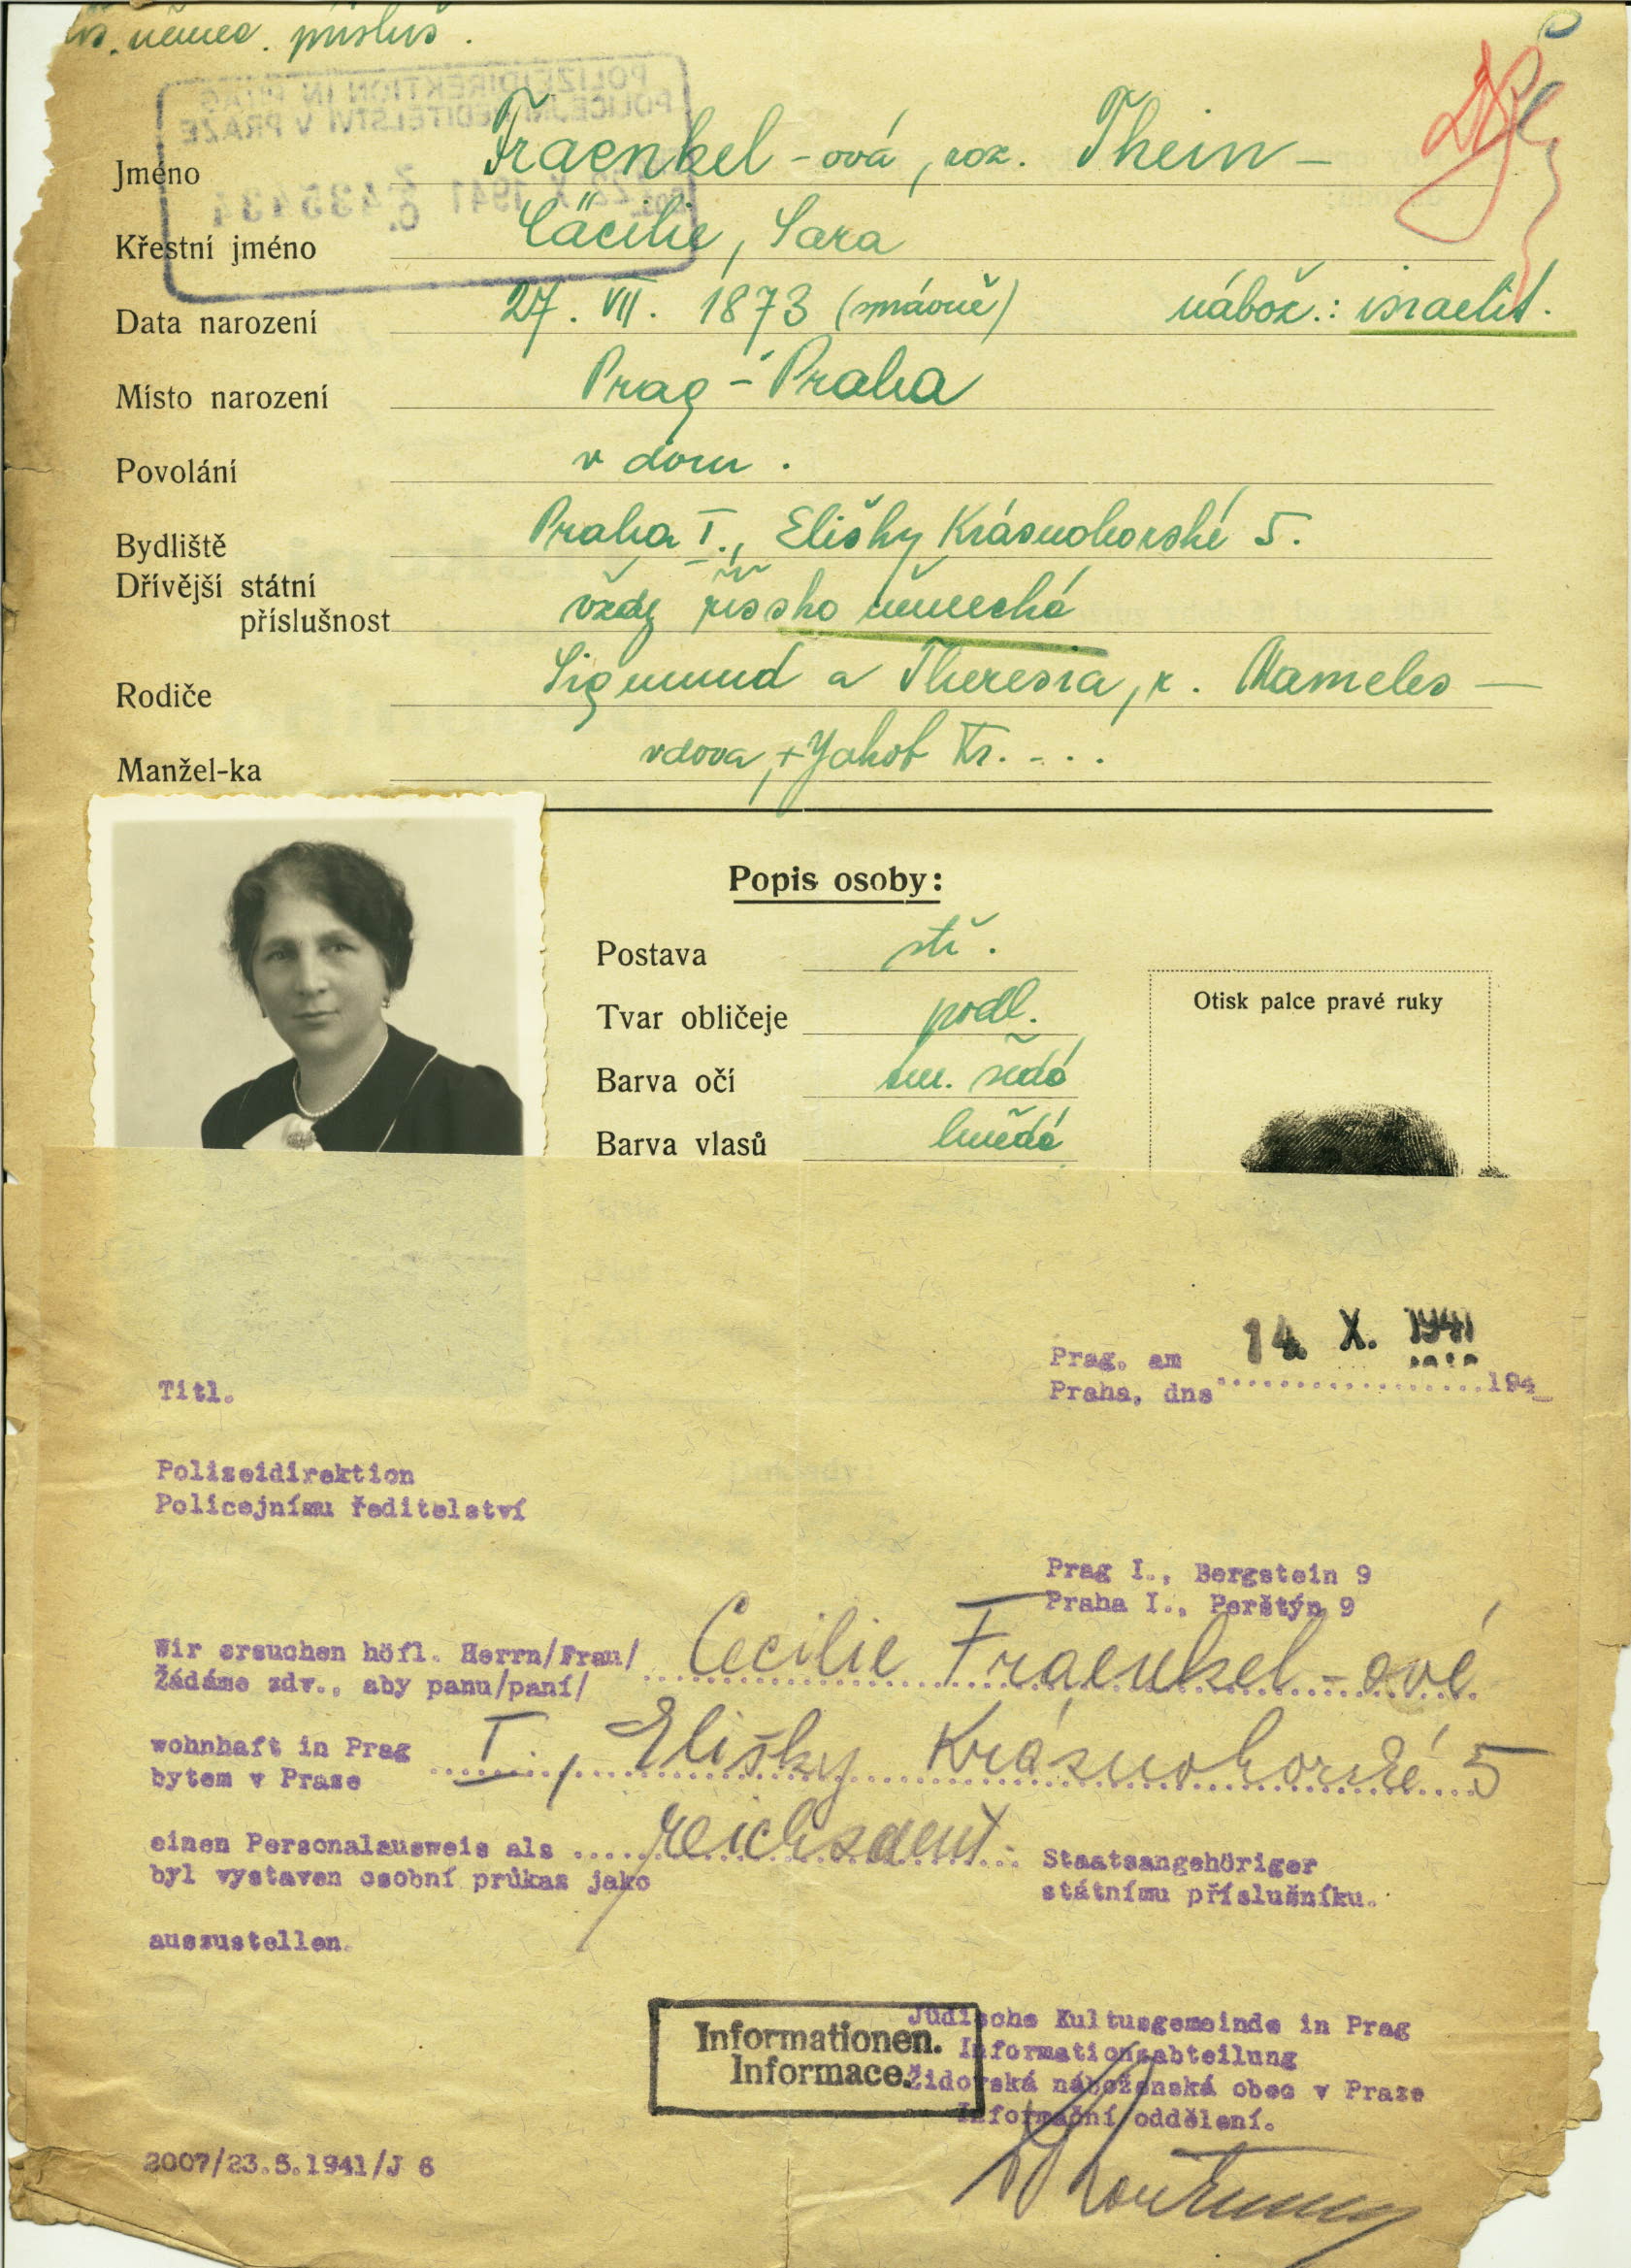 němec. přísluš.
POLIZEIDIREKTION IN PRAG
POLICEJNÍ ŘEDITELSTVÍ V PRAZE
22 X 1941 Č. 435434
Jméno Fraenkel-ová, roz. Thein-
Křestní jméno Cäcilie, Sara
Data narození 27. VII. 1873 (správně) nábož.: israelit.
Místo narození Prag-Praha
Povolání v dom.
Bydliště Praha I., Elišky Krásnohorské 5.
Dřívější státní
příslušnost vždy říšsko německá
Rodiče Sigmund a Theresia, r. Mameles-
Manžel-ka vdova, + Jakob Fr. - . .
Popis osoby:
Postava stř.
Tvar obličeje podl.
Barva očí tm. šedá
Barva vlasů hnědá
Otisk palce pravé ruky
Prag, am 14. X. 1941
Praha, dne ....................194_
Titl.
Polizeidirektion
Policejnímu ředitelství
Prag I., Bergstein 9
Praha I., Perštýn 9
Wir ersuchen höfl. Herrn/Frau/ Cecilie Fraenkel-ové
Žádáme zdv., aby panu/paní/
wohnhaft in Prag I., Elišky Krásnohorské 5
bytem v Praze
einen Personalausweis als reichsdeut. Staatsangehöriger
byl vystaven osobní průkaz jako státnímu příslušníku.
auszustellen.
Informationen.
Informace.
Jüdische Kultusgemeinde in Prag
Informationsabteilung
Židovská náboženská obec v Praze
Informační oddělení.
2007/23.5.1941/J 6